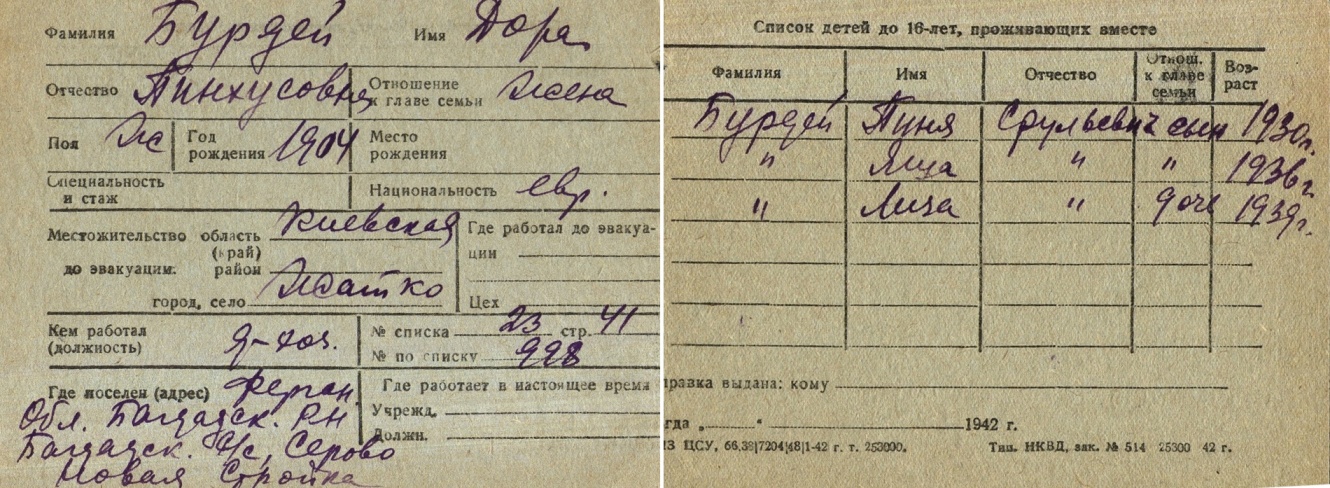 Фамилия Бурдей Имя Дора
Отчество Пинхусовна Отношение к главе семьи жена
Пол ж Год рождения 1904 Место рождения
Специальность и стаж Национальность евр.
Местожительство до эвакуации: область (край) Киевская Где работал до эвакуации
район
город, село Цех
Кем работал (должность) д-хоз. № списка 23 стр. 41
№ по списку 998
Где поселен (адрес) Ферган. Где работает в настоящее время
Обл. Багдадск. РН Учрежд.
Багдадск. с/с, Серово Должн.
Новая Стройка
Список детей до 16-лет, проживающих вместе
Фамилия Имя Отчество Отнош. к главе семьи Возраст
Бурдей Пуня Срульевич сын 1930г.
" " " 1936г.
" Лиза " доч 1939г.
правка выдана: кому
гда „ “ 1942 г.
ЦСУ, 66,38|7204|48|1-42 г. т. 253000. Тип. НКВД, зак. № 514 25300 42 г.